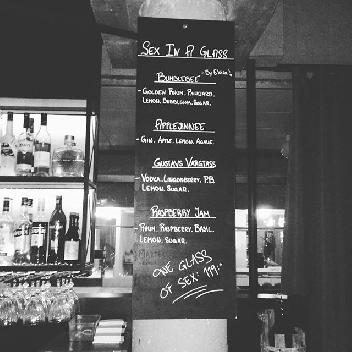 Sex In A Glass
Bumblebee
- Golden Rum,
Lemon, Sugar.
Applejunnee
- Gin, Apple, Lemon, Agave.
Gustavs Vargtass
- Vodka, Lingonberry, P.B
Lemon, Sugar.
Raspberry Jam
- Rum, Raspberry, Basil,
Lemon, Sugar.
One Glass
Of Sex: 119:-